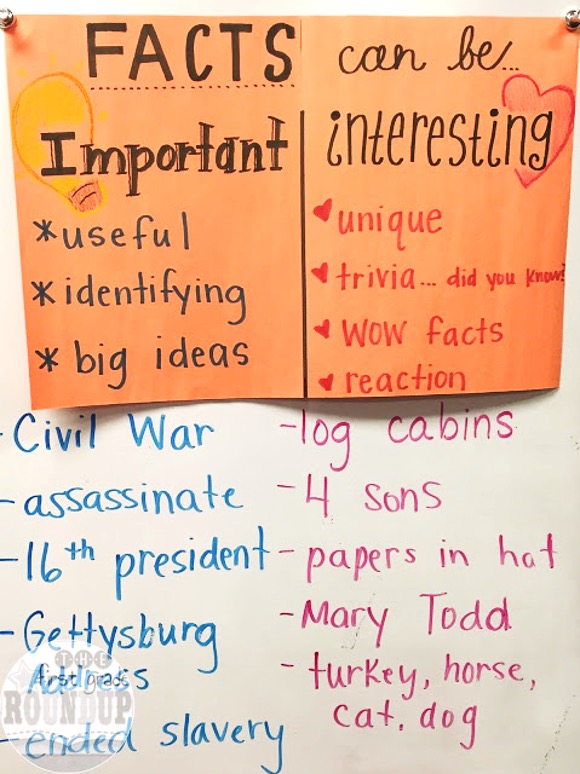 FACTS can be...
Important
*useful
*identifying
*big ideas
interesting
unique
trivia... did you know?
WOW facts
reaction
-Civil War
-assassinate
-16th president
-Gettysburg
Address
-ended slavery
-log cabins
-4 sons
-papers in hat
-Mary Todd
-turkey, horse,
cat, dog
THE
first grade
ROUNDUP